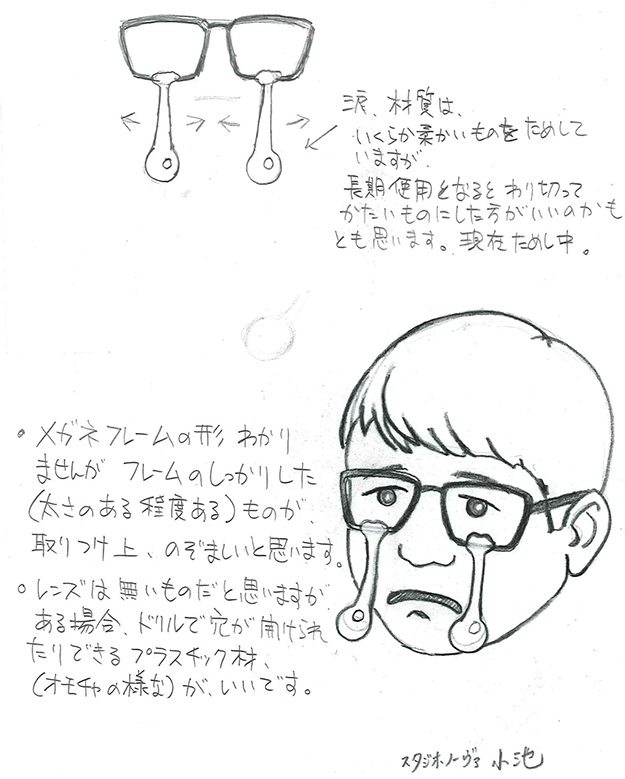 涙、材質は、
いくらか柔かいものをためして
いますが、
長期使用となると わり切って
かたいものにした方がいいのかも
とも思います。現在ためし中。
・メガネフレームの形 わかり
ませんが フレームのしっかりした
(太さのある程度ある)ものが、
取りつけ上、のぞましいと思います。
○レンズは無いものだと思いますが
ある場合、ドリルで穴が開けられ
たりできる プラスチック材、
(オモチャの様な)が、いいです。
スタジオ・ノーヴァ 小池